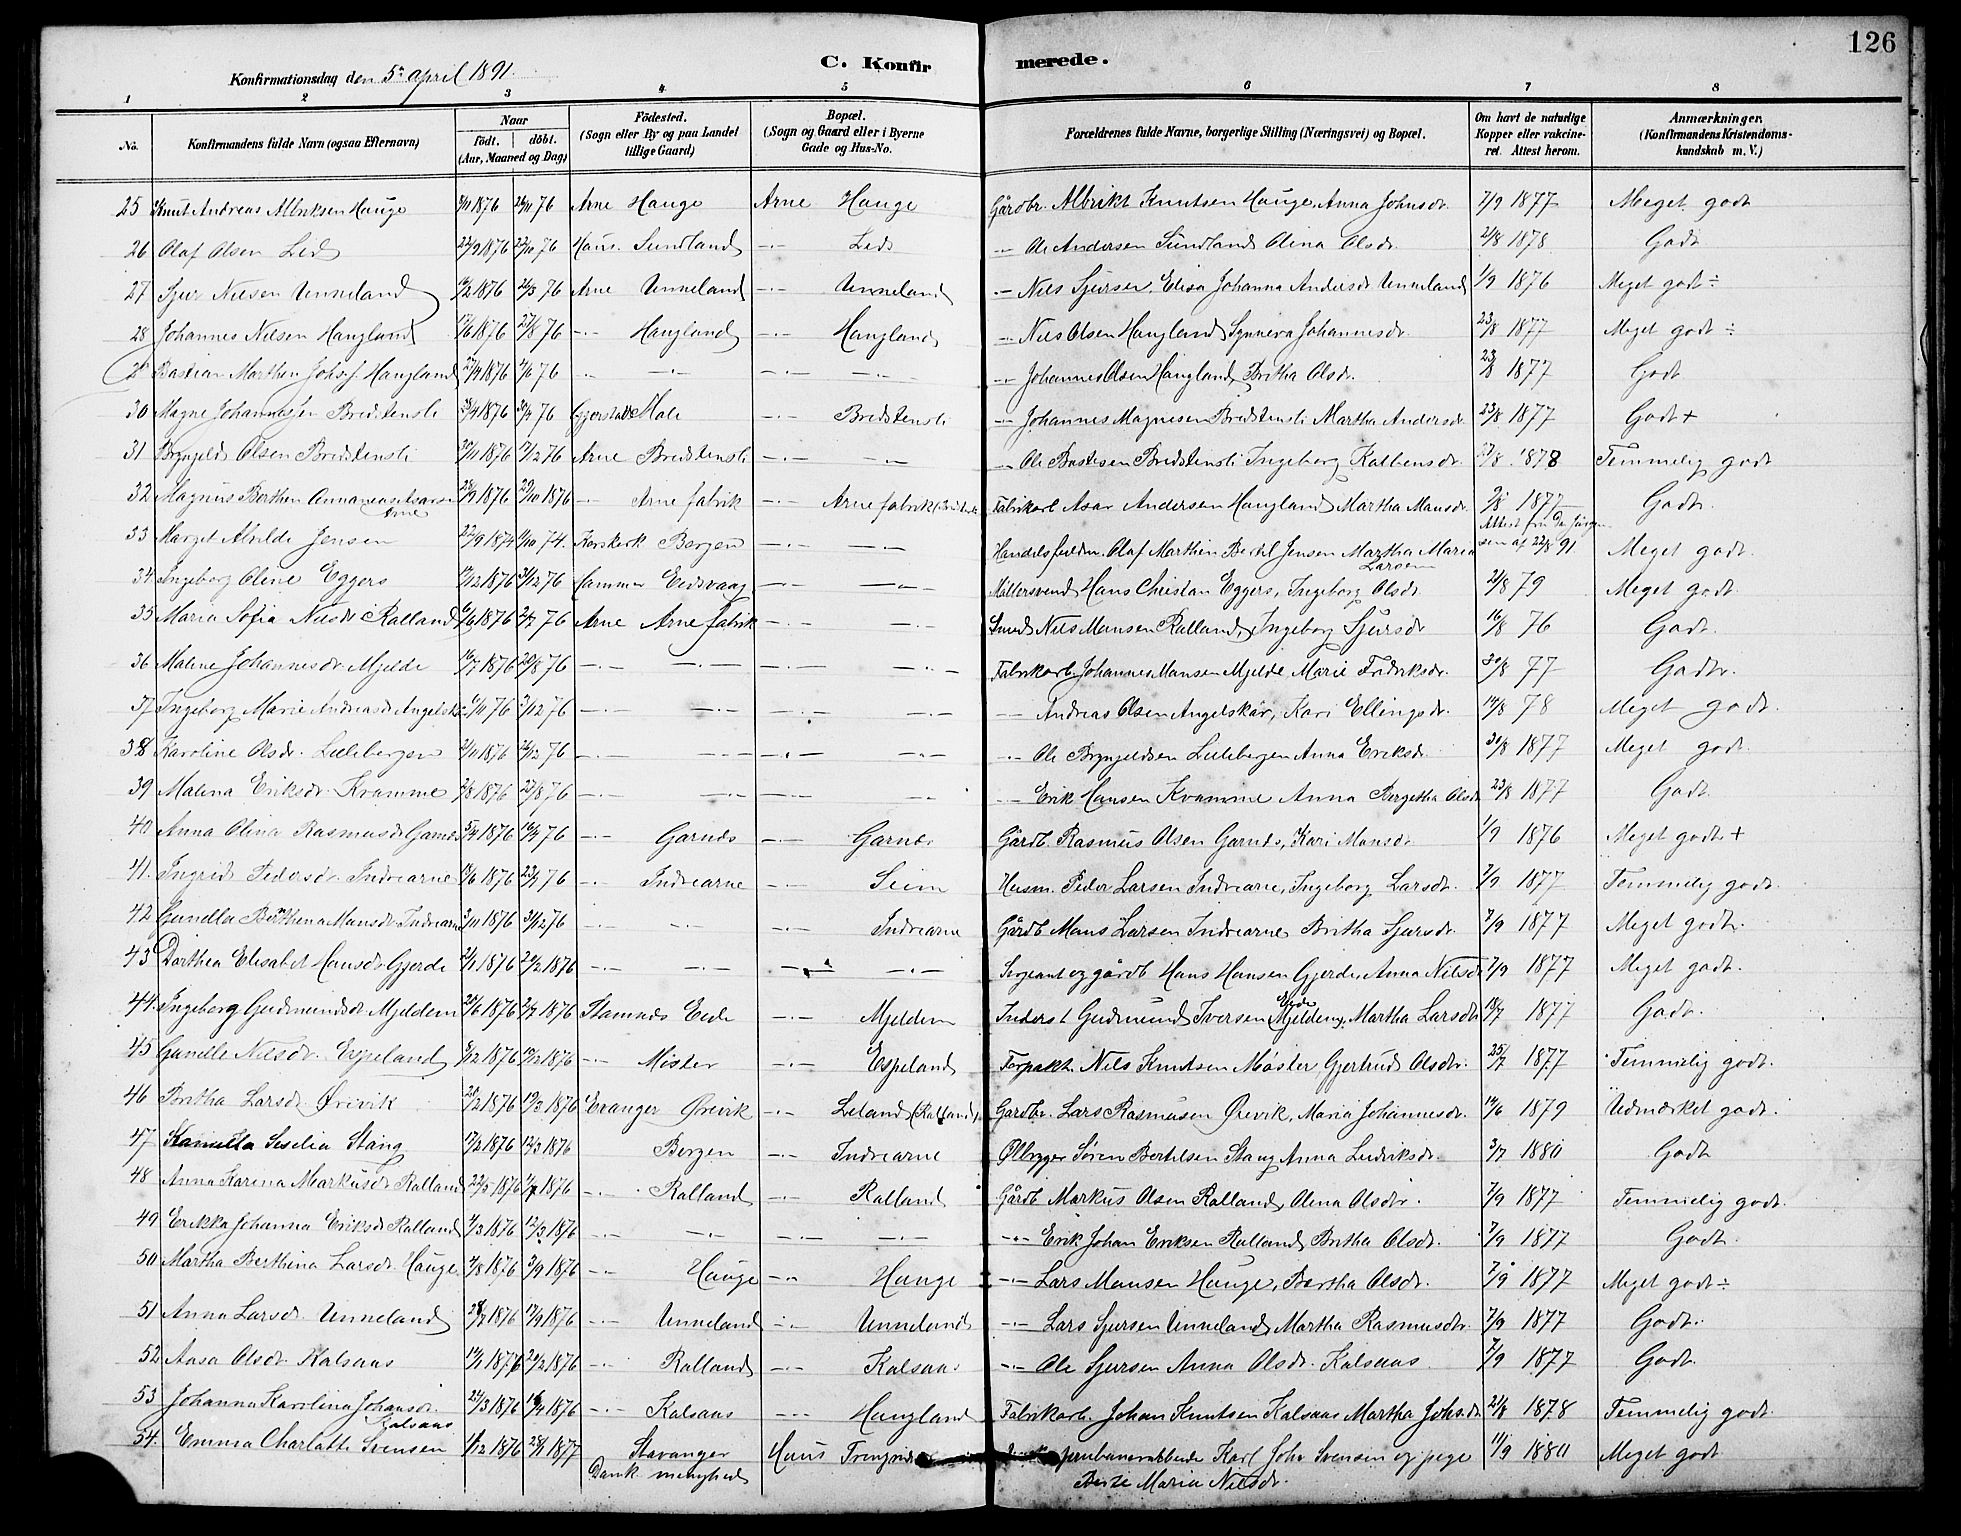 126
C. Konfirmerede.
Konfirmationsdag den 5te april 1891.
1 2 3 4 5 6 7 8
No. Konfirmandens fulde Navn (ogsaa Efternavn) Naar födt. döbt. (Aar, Maaned og Dag) Födested. (Sogn eller By og paa Landet tillige Gaard.) Bopæl. (Sogn og Gaard eller i Byerne Gade og Hus-No. Forældrenes fulde Navne, borgerlige Stilling (Næringsvei) og Bopæl. Om havt de naturlige Kopper eller vakcineret. Attest herom. Anmærkninger. (Konfirmandens Kristendomskundskab m. V.)
25 Knut Andreas Albriktsen Hauge 1876 76 Arne Hauge Arne Hauge Gårdbr. Albrikt Knutsen Hauge, Anna Johnsdr. 7/9 1877 Meget godt
26 Olaf Olsen Leid 22/9 1876 22/10 76 Haus. Sundland -"- Leid -"- Ole Andersen Sundland Olina Olsdr. 2/8 1878 Godt
27 Sjur Nilsen Unneland 1876 26/3 76 Arne Unneland -"- Unneland -"- Nils Sjursen, Elisa Johanna Andersdr Unneland 1/9 1876 Meget godt ÷
28 Johannes Nilsen Haugland 17/6 1876 27/8 76 -"- Haugland -"- Haugland -"- Nils Olsen Haugland Synneva Johannesdr. 23/8 1877 Meget godt ÷
Bastian Marthin Johs.s. Haugland 1876 76 -"- -"- -"- -"- -"- Johannes Olsen Haugland, Britha Olsdr. 23/8 1877 Godt
30 Magne Johannessen Bredstensli 1876 76 Gjerstad Hole -"- Bredstensli -"- Johannes Magnesen Bredstensli Martha Andersdr. 23/8 1877 Godt +
31 Brynjeld Olsen Bredstensli 1876 17/12 76 Arne Bredstensli -"- -"- -"- Ole Bastesen Bredstensli Ingeborg Kolbensdr. /8 1878 Temmelig godt
32 Magnus Berthin Annanias Asarsen Arne 28/9 1876 29/10 1876 -"- Arne fabrik -"- Arne fabrik Fabrikarb Asar Andersen Haugland Martha Mansdr. 9/8 1877 Godt.
33 Marget Alvilde Jensen 22/9 1874 74. Korskirk Bergen -"- -"- Handelsfuldm. Olaf Marthin Bertel Jensen Martha Maria Larsen Attest fra Dr. Jürgensen af 22/8 91 Meget godt.
34. Ingeborg Oline Eggers 1876 31/12 76 Hammer Eidsvaag -"- -"- Møllersvend Hans Christian Eggers, Ingeborg Olsdr 2/8 79 Meget godt.
35 Maria Sofia Nilsdr Ralland 1876 2/7 76 Arne Arne fabrik -"- -"- Smed Nils Monsen Ralland, Ingeborg Sjursdr 16/8 76 Godt.
36 Malene Johannesdr. Mjelde 16/7 1876 20/8 76 -"- -"- -"- -"- Fabrikarb. Johannes Monsen Mjelde Marie Fredriksdr. 30/8 77 Godt.
37 Ingeborg Marie Andreasdr Angelskår 76 3/12 76 -"- -"- -"- -"- -"- Andreas Olsen Angelskår, Kari Ellingsdr. 14/8 78 Meget godt.
38 Karoline Olsdr. Lillebergen 1876 26/12 76 -"- -"- -"- -"- -"- Ole Brynjeldsen Lillebergen Anna Eriksdr. 30/8 1877 Meget godt.
39 Malena Eriksdr. Kvamme 1876 27/8 76 -"- -"- -"- -"- -"- Erik Hansen Kvamme Anna Bergetha Olsdr 23/8 1877 Godt.
40 Anna Olina Rasmusdr Garnæs 5/4 1876 16/4 76 -"- Garnæs -"- Garnæs Gårdb. Rasmus Olsen Garnæs, Kari Monsdr. 1/9 1876 Meget godt +
41. Ingrid Pedersdr. Indrearne 1876 76 -"- Indrearne -"- Seim Husm. Peder Larsen Indrearne, Ingeborg Larsdr. 7/9 1877 Temmelig godt.
42 Gunilla Berthina Monsdr. Indrearne 3/11 1876 31/12 76 -"- -"- -"- Indrearne Gårdb. Mons Larsen Indrearne Britha Sjursdr. 7/9 1877 Meget godt.
43 Dorthea Elisabet Hansdr. Gjerde 1876 20/2 1876 -"- -"- -"- -"- Sergeant og gårdb Hans Hansen Gjerde, Anna Nilsdr 7/9 1877 Meget godt.
44. Ingeborg Gudmundsdr. Mjeldem 1876 2/7 1876 Stamnæs Eide -"- Mjeldem Inderst Gudmund Iversen Eide (Mjeldem), Martha Larsdr. 1877 Godt.
45 Gunille Nilsdr. Espeland 1876 1876 -"- Mister -"- Espeland Forpakt. Nils Knutsen Møster, Gjertrud Olsdr. 25/7 1877 Temmelig godt.
46 Britha Larsdr. Ørevik 1876 19/3 1876 Evanger Ørevik -"- Leland (Ralland) Gardbr. Lars Rasmusen Ørevik, Maria Johannesdr. 14/6 1879 Udmærket godt.
47 Kamilla Seselia Stang 17/2 1876 12/3 1876 Bergen -"- Indrearne Ølbrygger Søren Bertelsen Stang Anna Ludviksdr. 3/7 1880 Godt
48 Anna Karina Markusdr Ralland 22/5 1876 1876 -"- Ralland -"- Ralland Gårdb Markus Olsen Ralland, Olina Olsdtr. 7/9 1877 Temmelig godt.
49 Erikka Johanna Eriksdr Ralland 1876 12/3 1876 -"- -"- -"- -"- -"- Erik Johan Eriksen Ralland Britha Olsdr. 7/9 1877 Godt.
50 Martha Berthina Larsdr. Hauge 1876 3/9 1876 -"- Hauge -"- Hauge -"- Lars Monsen Hauge, Bertha Olsdr. 7/9 1877 Meget godt ÷
51 Anna Larsdr. Unneland 1876 17/9 1876 -"- Unneland -"- Unneland -"- Lars Sjursen Unneland, Martha Rasmusdtr. 7/9 1877 Godt.
52 Aasa Olsdr. Kalsaas 1876 20/2 1876 -"- Ralland -"- Kalsaas -"- Ole Sjursen Anna Olsdr. Kalsaas. 7/9 1877 Godt.
53 Johanna Karolina Johansdr. Kalsaas 24/3 1876 1876 -"- Kalsaas -"- Haugland Fabrikarb. Johan Knutsen Kalsaas Martha Johs.dr. 21/8 1878 Temmelig godt.
54. Emma Charlotte Svensen 1876 1877 Stavanger Dank menighed Haus Trengreid Karl Johs Svensen og pige Maria Nilsdr. 11/9 1880 Meget godt